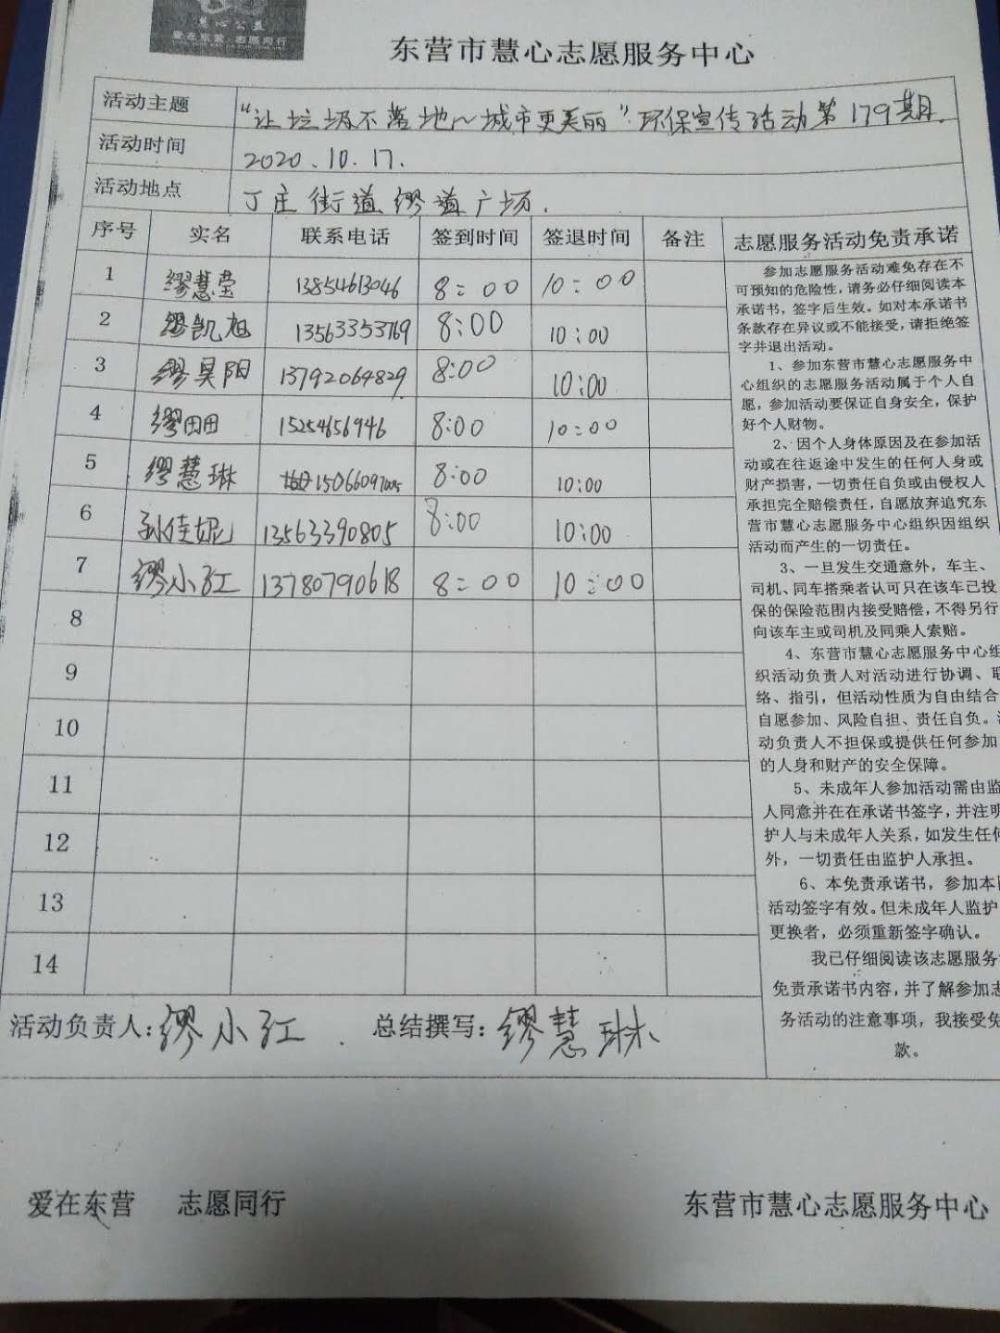 慧心公益
爱在东营 志愿同行
东营市慧心志愿服务中心
活动主题 “让垃圾不落地～城市更美丽”环保宣传活动第179期.
活动时间 2020.10.17.
活动地点 丁庄街道缪道广场.
序号 实名 联系电话 签到时间 签退时间 备注 志愿服务活动免责承诺
1 缪慧莹 13854613046 8:00 10:00
2 缪凯旭 13563353769 8:00 10:00
3 缪昊阳 13792064829 8:00 10:00
4 缪田田 15254656946 8:00 10:00
5 缪慧琳 8:00 10:00
6 孙佳妮 13563390805 8:00 10:00
7 缪小红 13780790618 8:00 10:00
8
9
10
11
12
13
14
参加志愿服务活动难免存在不
可预知的危险性，请务必仔细阅读本
承诺书，签字后生效。如对本承诺书
条款存在异议或不能接受，请拒绝签
字并退出活动。
1、参加东营市慧心志愿服务中
心组织的志愿服务活动属于个人自
愿，参加活动要保证自身安全，保护
好个人财物。
2、因个人身体原因及在参加活
动或在往返途中发生的任何人身或
财产损害，一切责任自负或由侵权人
承担完全赔偿责任，自愿放弃追究东
营市慧心志愿服务中心组织因组织
活动而产生的一切责任。
3、一旦发生交通意外，车主、
司机、同车搭乘者认可只在该车已投
保的保险范围内接受赔偿，不得另行
向该车主或司机及同乘人索赔。
4、东营市慧心志愿服务中心组
织活动负责人对活动进行协调、联
络、指引，但活动性质为自由结合
自愿参加、风险自担、责任自负。活
动负责人不担保或提供任何参加
的人身和财产的安全保障。
5、未成年人参加活动需由监
人同意并在在承诺书签字，并注明
护人与未成年人关系，如发生任何
外，一切责任由监护人承担。
6、本免责承诺书，参加本
活动签字有效。但未成年人监护
更换者，必须重新签字确认。
我已仔细阅读该志愿服务
免责承诺书内容，并了解参加志
务活动的注意事项，我接受免
款。
活动负责人：缪小红. 总结撰写：缪慧琳
爱在东营 志愿同行 东营市慧心志愿服务中心